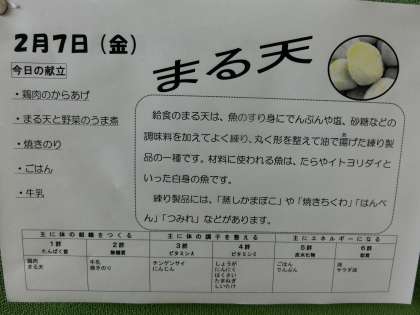 2月7日(金)
まる天
今日の献立
・鶏肉のからあげ
・まる天と野菜のうま煮
・焼きのり
・ごはん
・牛乳
給食のまる天は、魚のすり身にでんぷんや塩、砂糖などの
調味料を加えてよく練り、丸く形を整えて油で揚げた練り製
品の一種です。材料に使われる魚は、たらやイトヨリダイと
いった白身の魚です。
練り製品には、「蒸しかまぼこ」や「焼きちくわ」「はんぺ
ん」「つみれ」などがあります。
主に体の組織をつくる 主に体の調子を整える 主にエネルギーになる
1群 2群 3群 4群 5群 6群
たんぱく質 無機質 ビタミンA ビタミンC 炭水化物 脂質
鶏肉 牛乳 チンゲンサイ しょうが ごはん 油
まる天 焼きのり にんじん にんにく でんぷん サラダ油
はくさい
たまねぎ
しいたけ